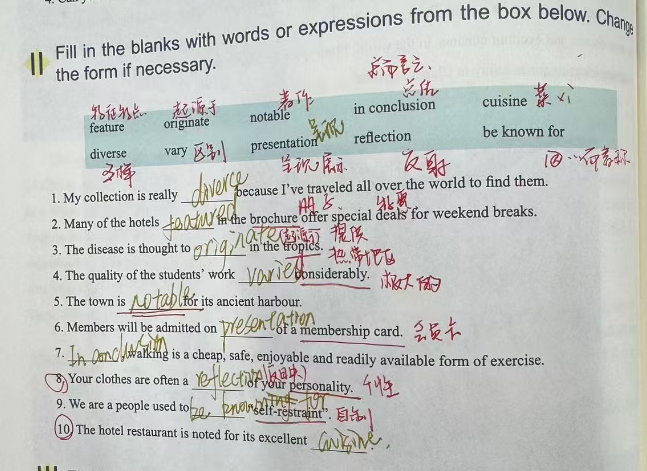 II Fill in the blanks with words or expressions from the box below. Change
the form if necessary.
总而言之、
特征特点 起源于 著作 总结
feature originate notable in conclusion cuisine 菜
diverse vary 区别 presentation 呈现 reflection be known for
多样 呈现 展示 反射 因…而
1. My collection is really diverse because I've traveled all over the world to find them.
2. Many of the hotels featured in the brochure offer special deals for weekend breaks.
3. The disease is thought to originate in the tropics. 提供
热带地区
4. The quality of the students' work varies considerably. 极大的
5. The town is notable for its ancient harbour.
6. Members will be admitted on presentation of a membership card. 会员卡
7. In conclusion walking is a cheap, safe, enjoyable and readily available form of exercise.
8. Your clothes are often a reflection of your personality. 个性
9. We are a people used to be known for "self-restraint". 自制
10. The hotel restaurant is noted for its excellent cuisine.